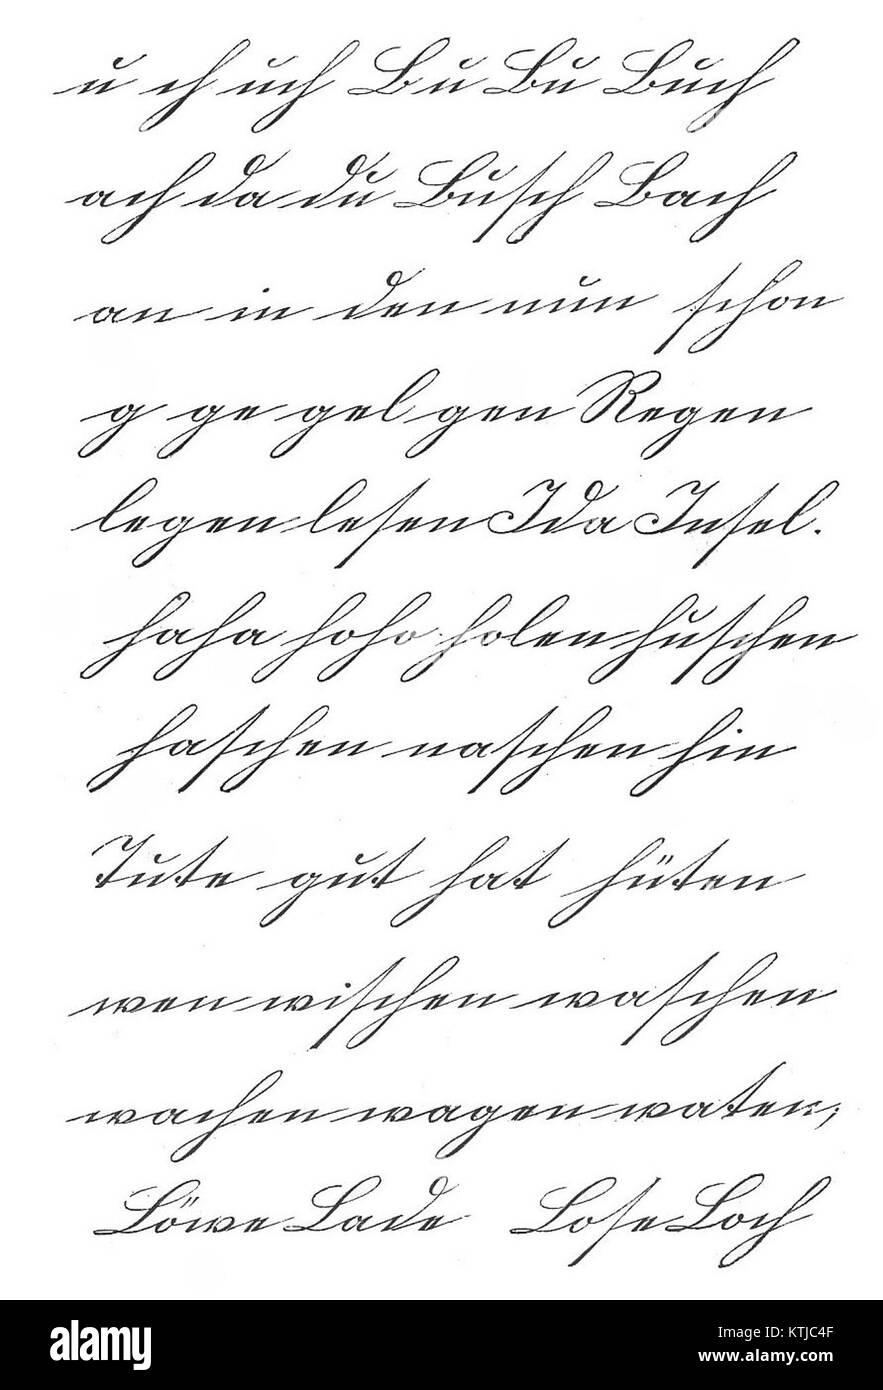 u ch uch Bu Bu Buch
ach da du Busch Bach
an in den nun schon
g ge gel gen Regen
legen lesen Ida Insel.
haha hoho holen huschen
haschen naschen hin
Tute gut hat hüten
wen wischen waschen
wachen wagen waten;
Löwe Lade Lose Loch
alamy
Image ID: KTJC4F
www.alamy.com